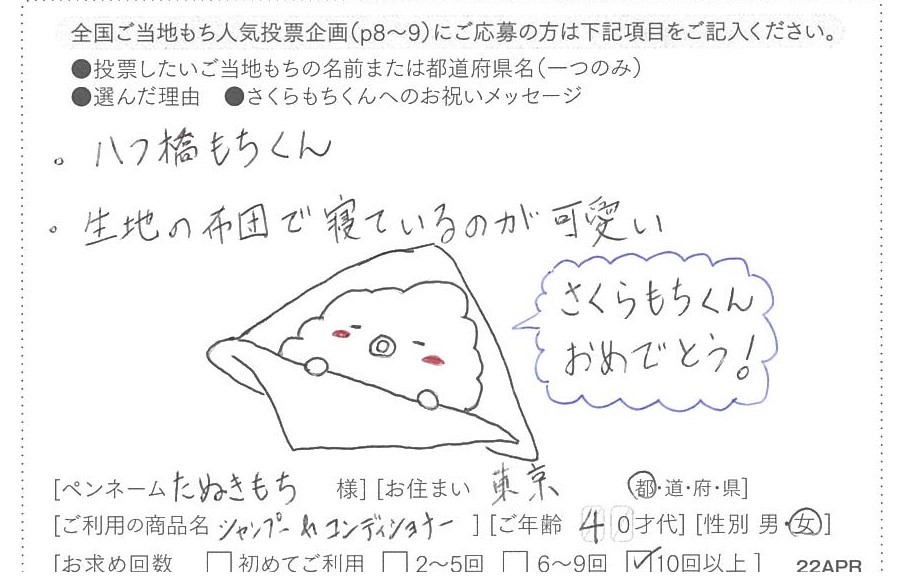 全国ご当地もち人気投票企画(p8~9)にご応募の方は下記項目をご記入ください。
●投票したいご当地もちの名前または都道府県名(一つのみ)
●選んだ理由 ●さくらもちくんへのお祝いメッセージ
。八つ橋もちくん
・生地の布団で寝ているのが可愛い
さくらもちくん
おめでとう!
[ペンネーム たぬきもち 様] [お住まい 東京 都・道・府・県]
[ご利用の商品名 シャンプー コンディショナー ] [ご年齢 40才代] [性別 男・女]
[お求め回数 □初めてご利用 □2~5回 □6~9回 ☑10回以上] 22APR